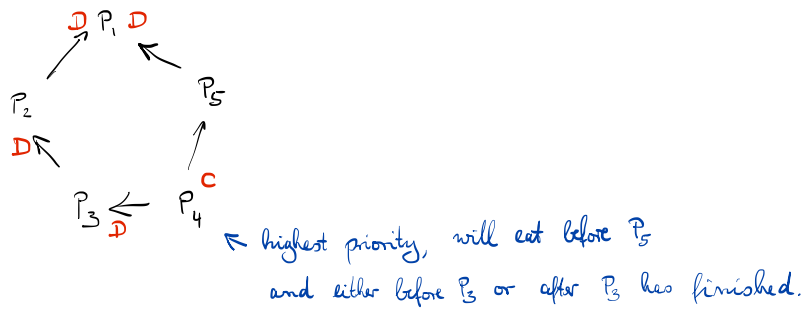 D P1 D
P2
P5
D
C
P3
P4
D
highest priority, will eat before P5
and either before P3 or after P3 has finished.